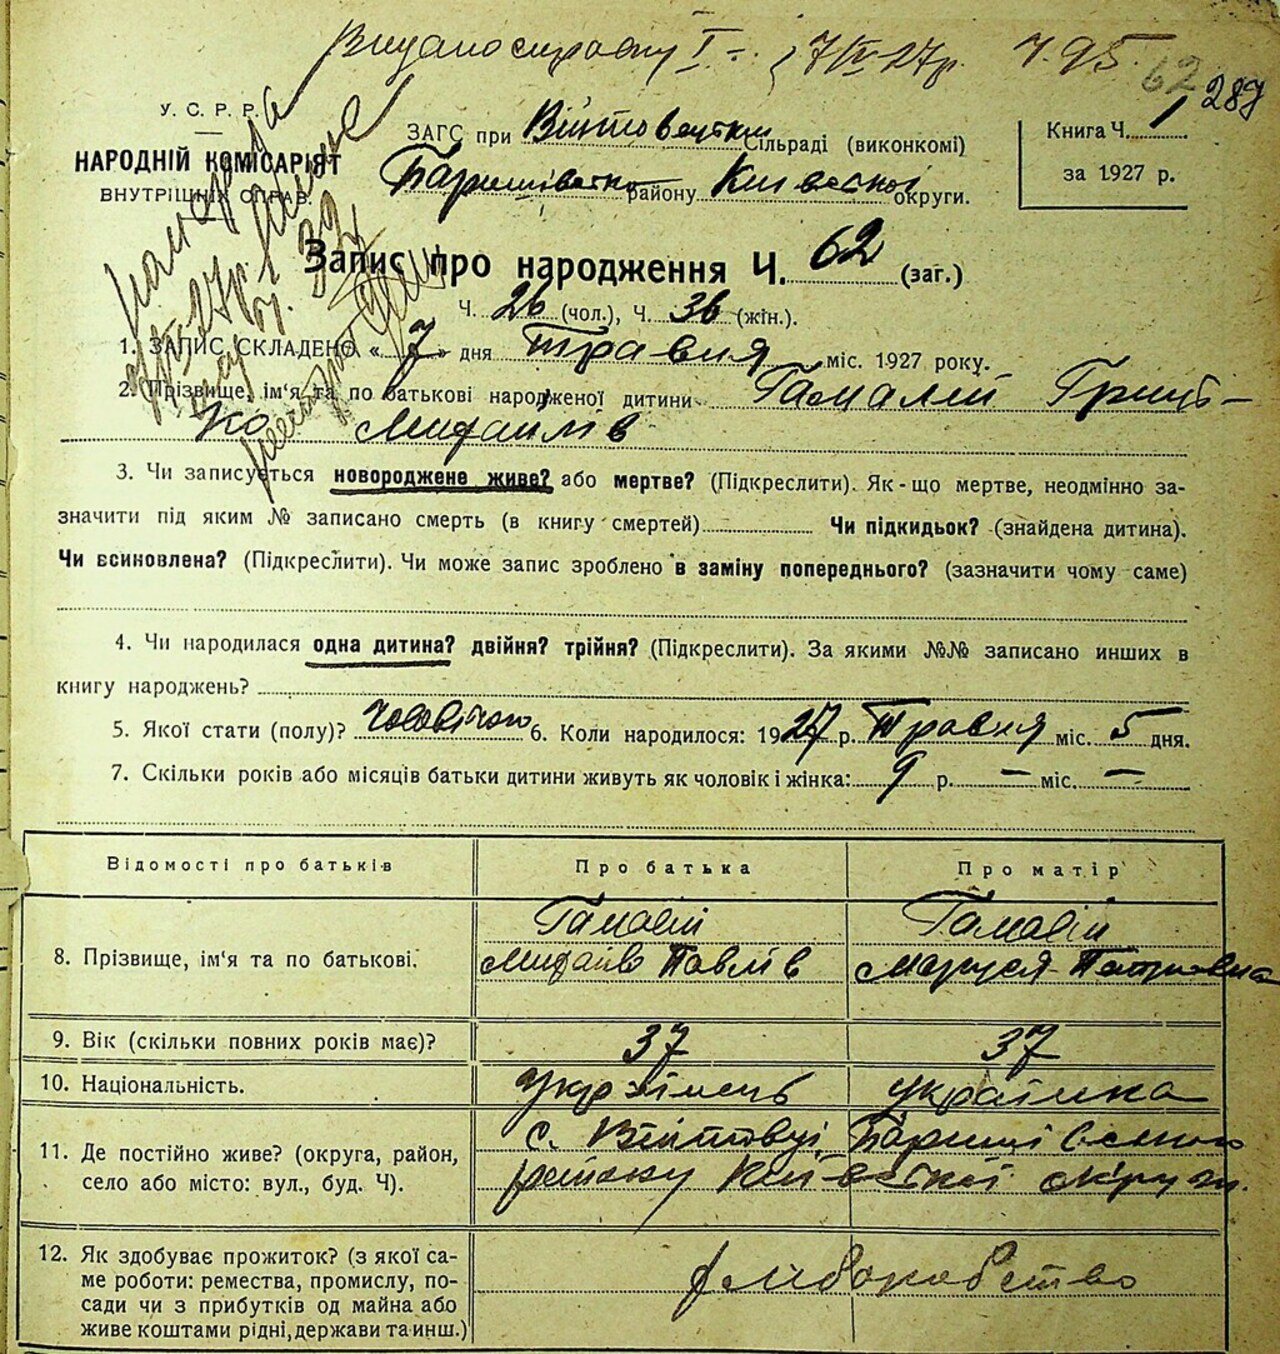 Видано справку І 7/ІV-27р. Ч. 95.
62 287
У. С. Р. Р.
НАРОДНІЙ КОМІСАРІЯТ
ВНУТРІШНІХ СПРАВ.
ЗАГС при Війтовецькій Сільраді (виконкомі)
Баришівського району Київської округи.
Книга Ч. 1
за 1927 р.
Запис про народження Ч. 62 (заг.)
Ч. 26 (чол.), Ч. 36 (жін.).
1. ЗАПИС СКЛАДЕНО „ 7 " дня травня міс. 1927 року.
2. Прізвище, ім'я та по батькові народженої дитини Гамалій Гриць-
ко Михайлів
3. Чи записується новороджене живе? або мертве? (Підкреслити). Як-що мертве, неодмінно за-
значити під яким № записано смерть (в книгу смертей) Чи підкидьок? (знайдена дитина).
Чи всиновлена? (Підкреслити). Чи може запис зроблено в заміну попереднього? (зазначити чому саме)
4. Чи народилася одна дитина? двійня? трійня? (Підкреслити). За якими №№ записано инших в
книгу народжень?
5. Якої стати (полу)? чоловічою 6. Коли народилося: 1927 р. травня міс. 5 дня.
7. Скільки років або місяців батьки дитини живуть як чоловік і жінка: 9 р. — міс. —
Відомості про батьків Про батька Про матір
8. Прізвище, ім'я та по батькові. Гамалій Гамалій
Михайло Павлів Маруся Петровна
9. Вік (скільки повних років має)? 37 37
10. Національність. Українець українка
11. Де постійно живе? (округа, район,
село або місто: вул., буд. Ч).
с. Війтовці, Баришівського
району Київської округи.
12. Як здобуває прожиток? (з якої са-
ме роботи: ремества, промислу, по-
сади чи з прибутків од майна або
живе коштами рідні, держави та инш.)
хліборобство